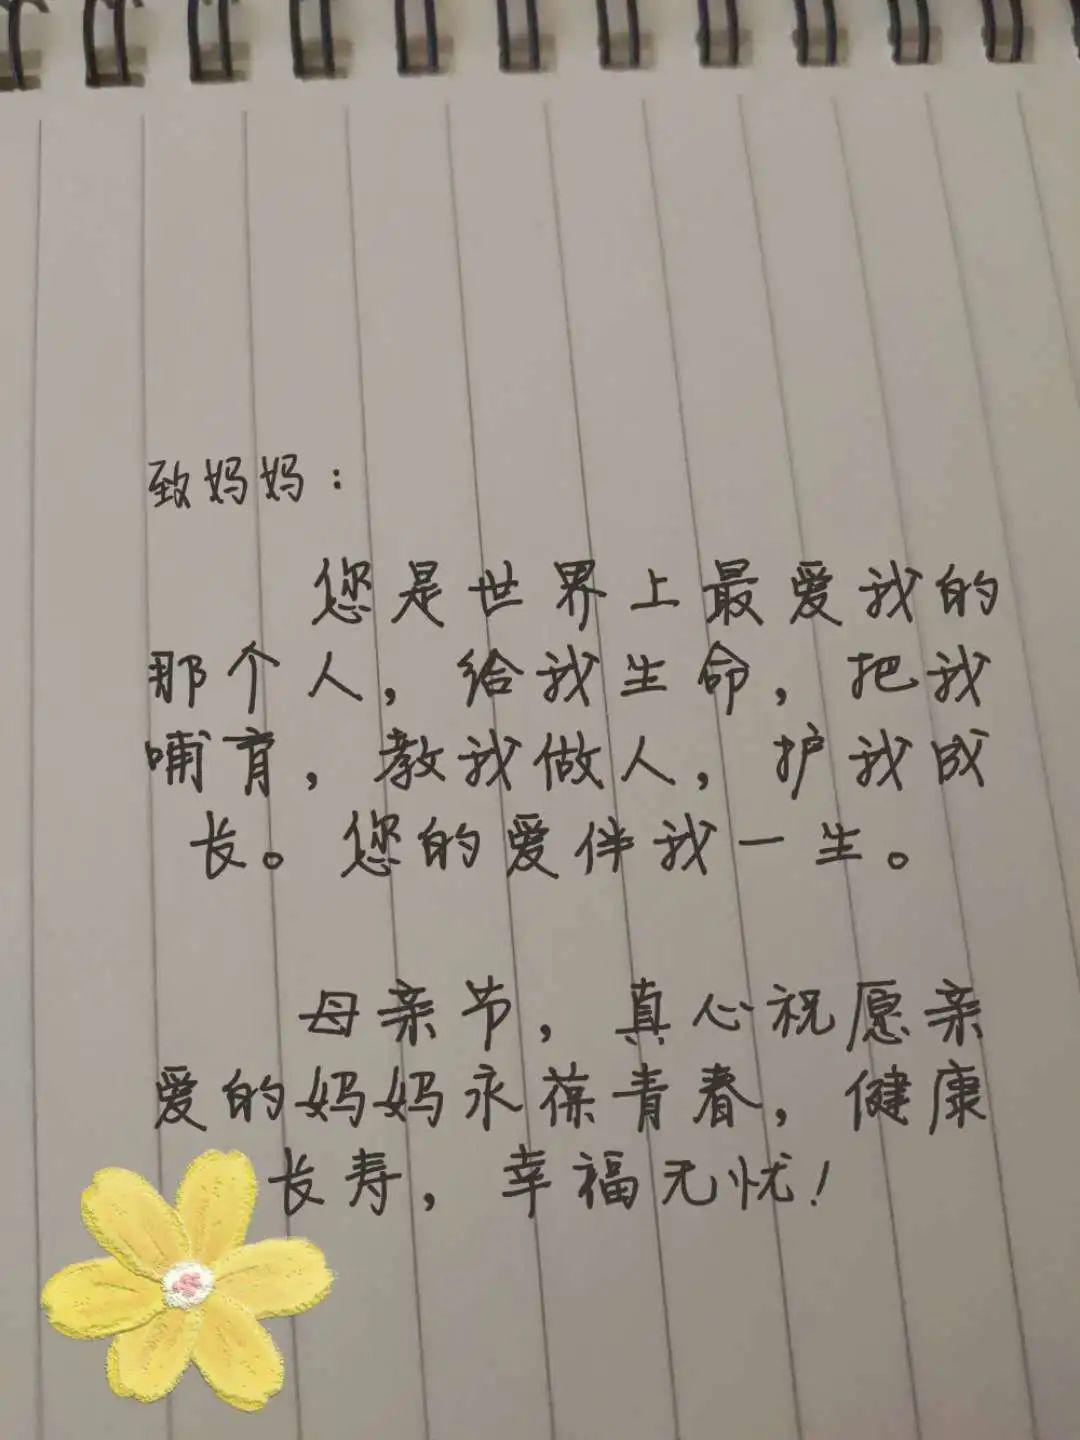 致妈妈：
您是世界上最爱我的
那个人，给我生命，把我
哺育，教我做人，护我成
长。您的爱伴我一生。
母亲节，真心祝愿亲
爱的妈妈永葆青春，健康
长寿，幸福无忧！